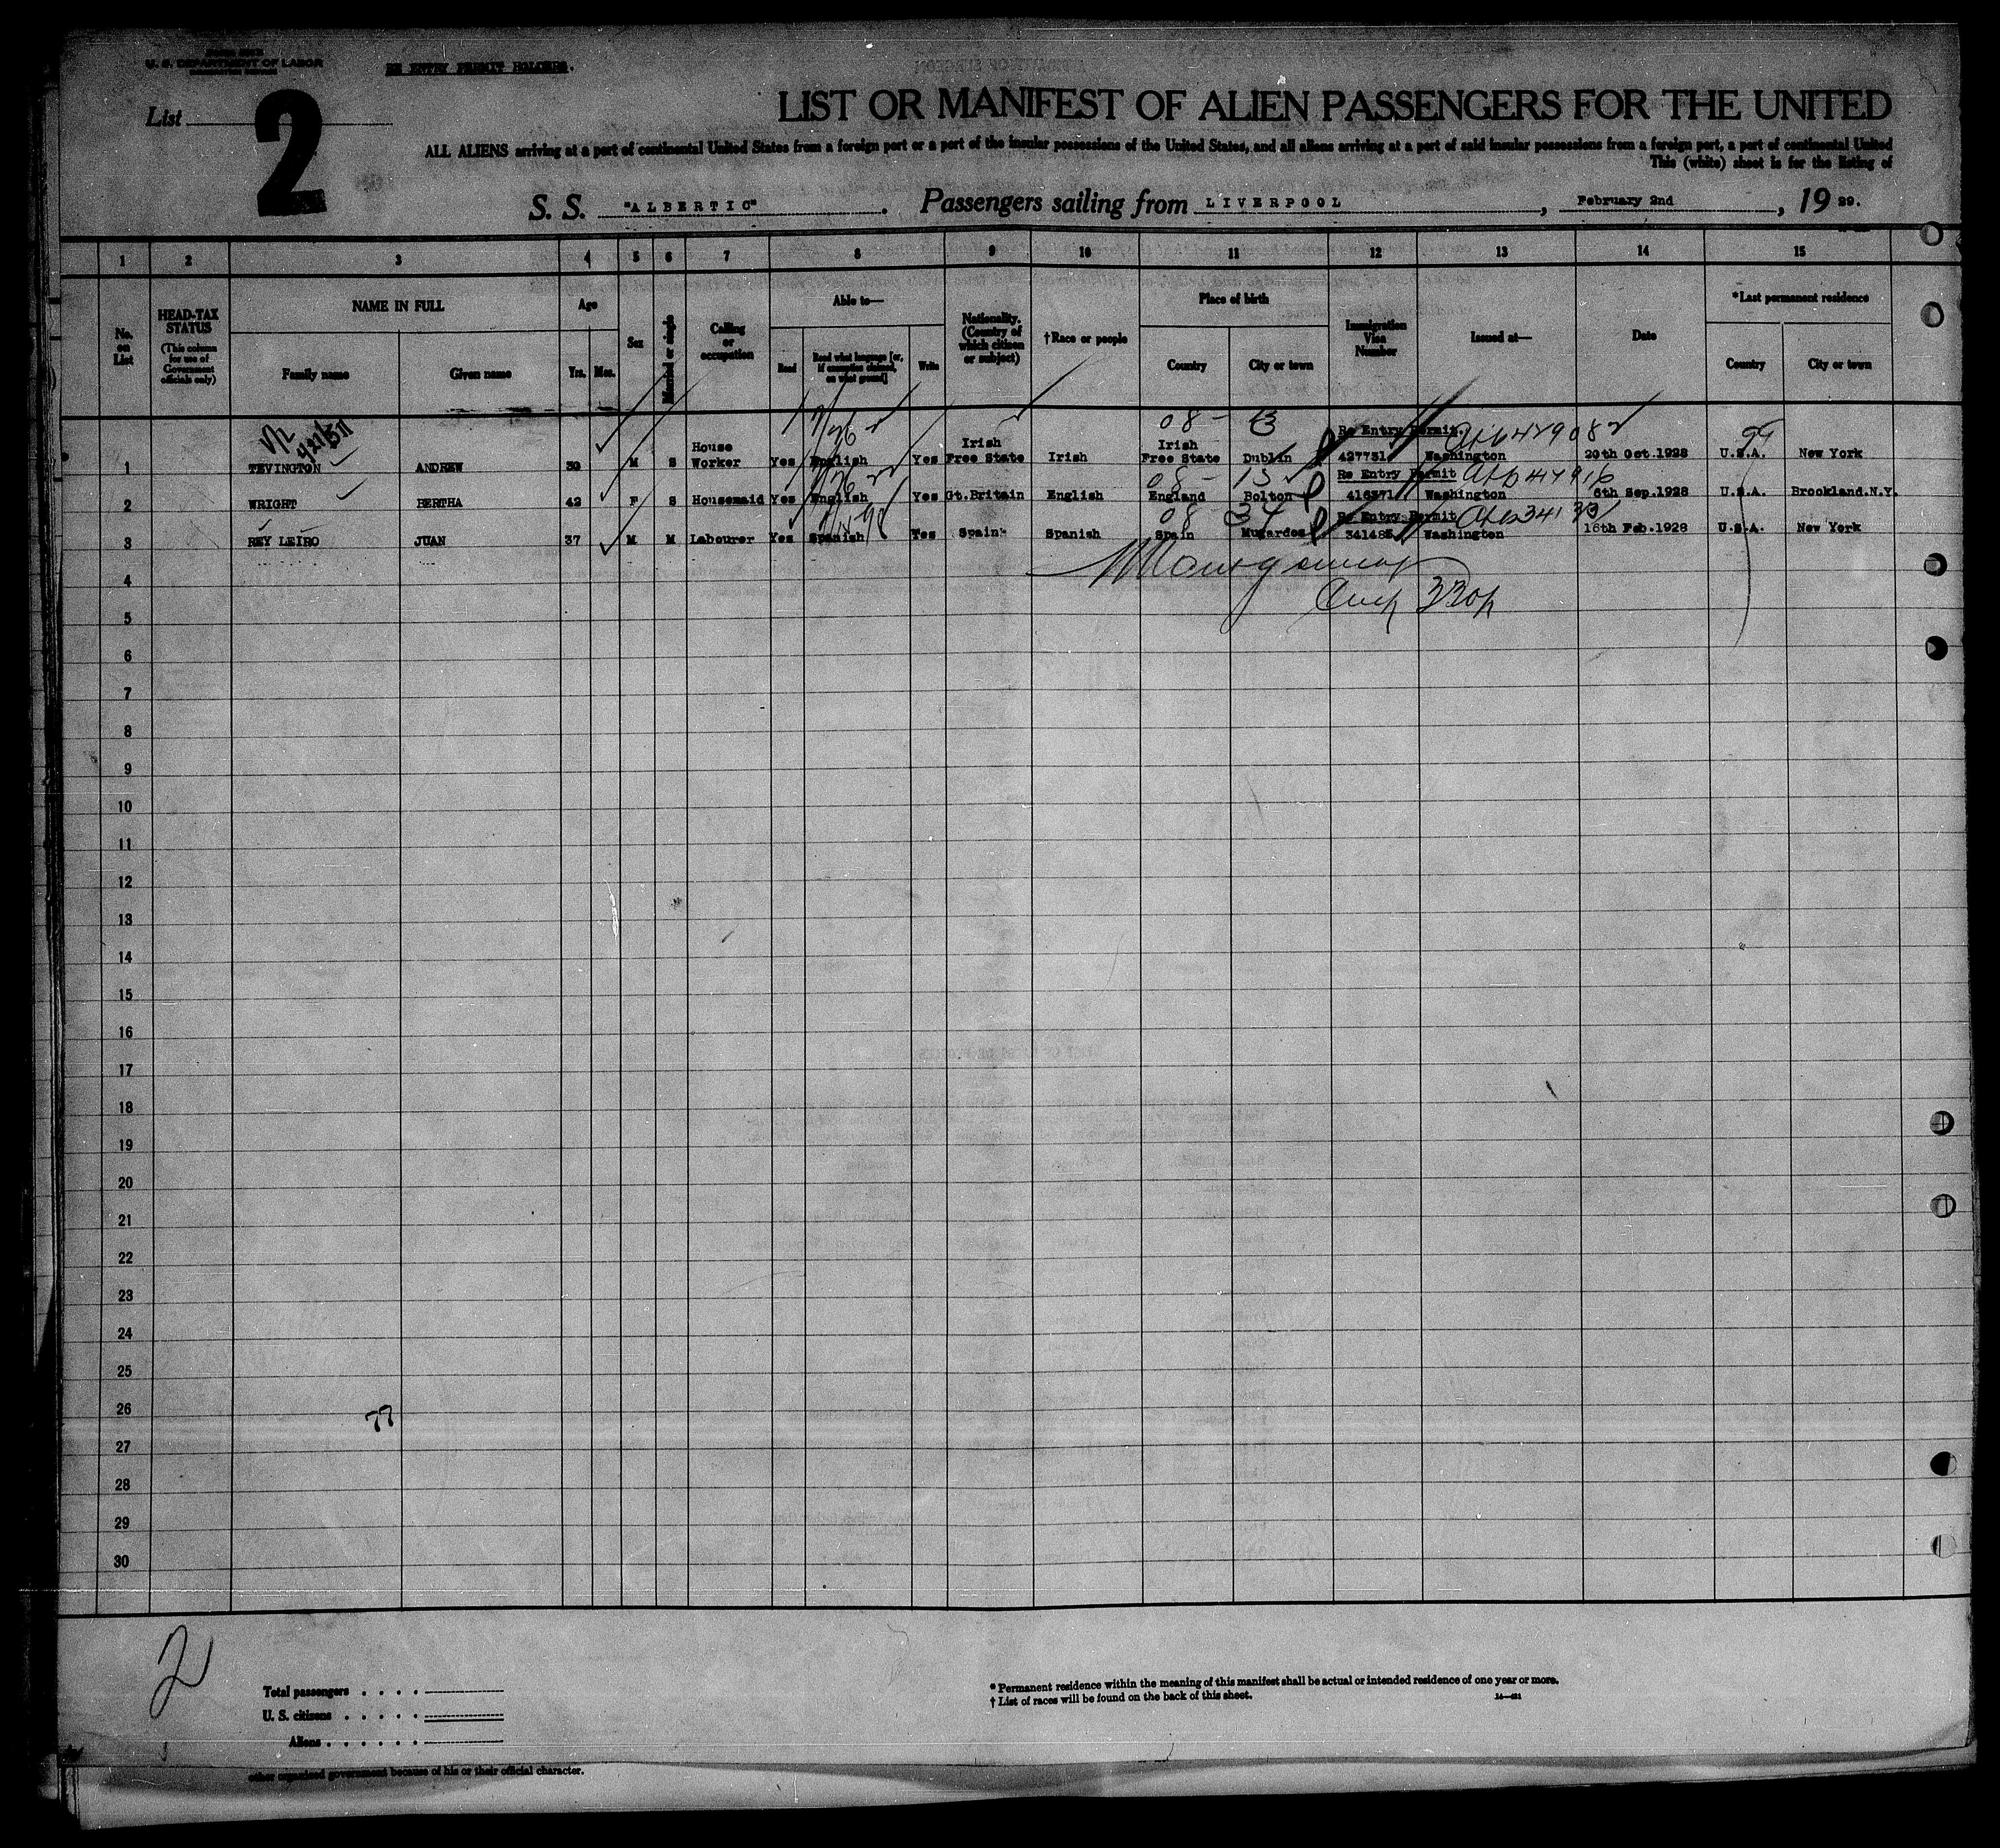 U. S. DEPARTMENT OF LABOR
RE ENTRY PERMIT HOLDERS.
List 2
LIST OR MANIFEST OF ALIEN PASSENGERS FOR THE UNITED
ALL ALIENS arriving at a port of continental United States from a foreign port or a port of the insular possessions of the United States, and all aliens arriving at a port of said insular possessions from a foreign port, a port of continental United
This (white) sheet is for the listing of
S. S. "ALBERTIC". Passengers sailing from LIVERPOOL, February 2nd, 19 29.
1 2 3 4 5 6 7 8 9 10 11 12 13 14 15
No. on List
HEAD-TAX STATUS
(This column for use of Government officials only)
NAME IN FULL
Family name
Given name
Age
Yrs. Mos.
Sex
Married or single
Calling or occupation
Able to—
Read
Read what language [or, if exemption claimed, on what ground]
Write
Nationality. (Country of which citizen or subject)
†Race or people
Place of birth
Country
City or town
Immigration Visa Number
Issued at—
Date
*Last permanent residence
Country
City or town
08 - 13
1 TEVINGTON ANDREW 30 M S House Worker Yes English Yes Irish Free State Irish Irish Free State Dublin Re Entry Permit. 427731 Washington 20th Oct.1928 U.S.A. New York
08 - 13
2 WRIGHT BERTHA 42 F S Housemaid Yes English Yes Gt.Britain English England Bolton Re Entry Permit 416371 Washington 6th Sep.1928 U.S.A. Brookland.N.Y.
08 34
3 REY LEIRO JUAN 37 M M Labourer Yes Spanish Yes Spain Spanish Spain Mugardos Re Entry Permit Washington 16th Feb.1928 U.S.A. New York
4
5
6
7
8
9
10
11
12
13
14
15
16
17
18
19
20
21
22
23
24
25
26
77
27
28
29
30
2
Total passengers
U. S. citizens
Aliens
* Permanent residence within the meaning of this manifest shall be actual or intended residence of one year or more.
† List of races will be found on the back of this sheet.
other organized government because of his or their official character.